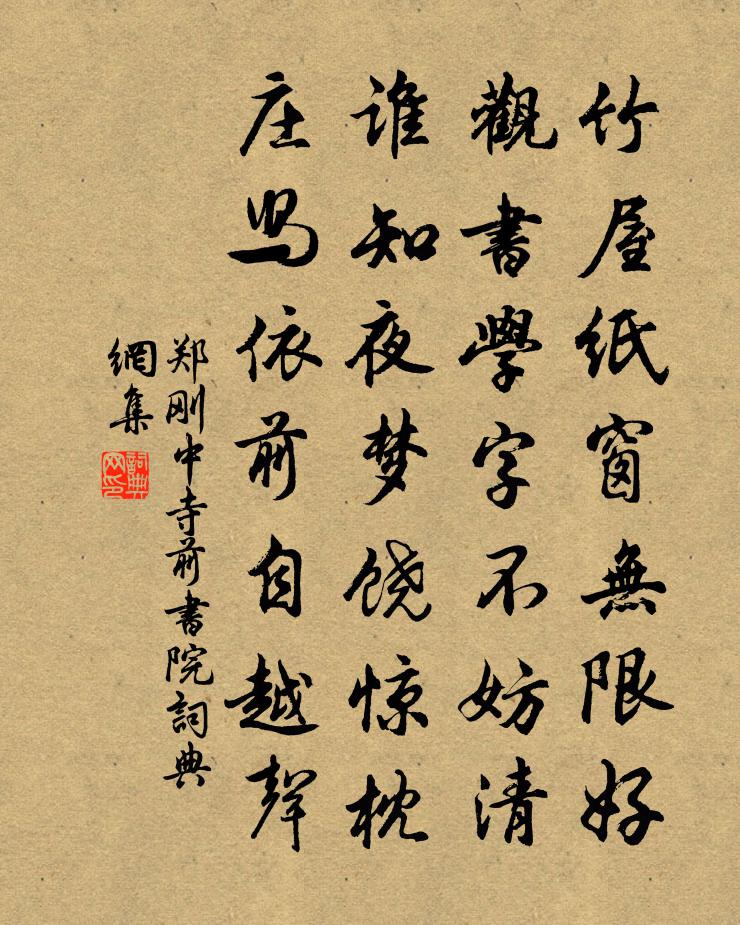 竹屋纸窗無限好
觀書學字不妨清
谁知夜梦饶惊枕
庄舄依前自越聲
郑刚中寺前書院詞典
網集
詞典
网印